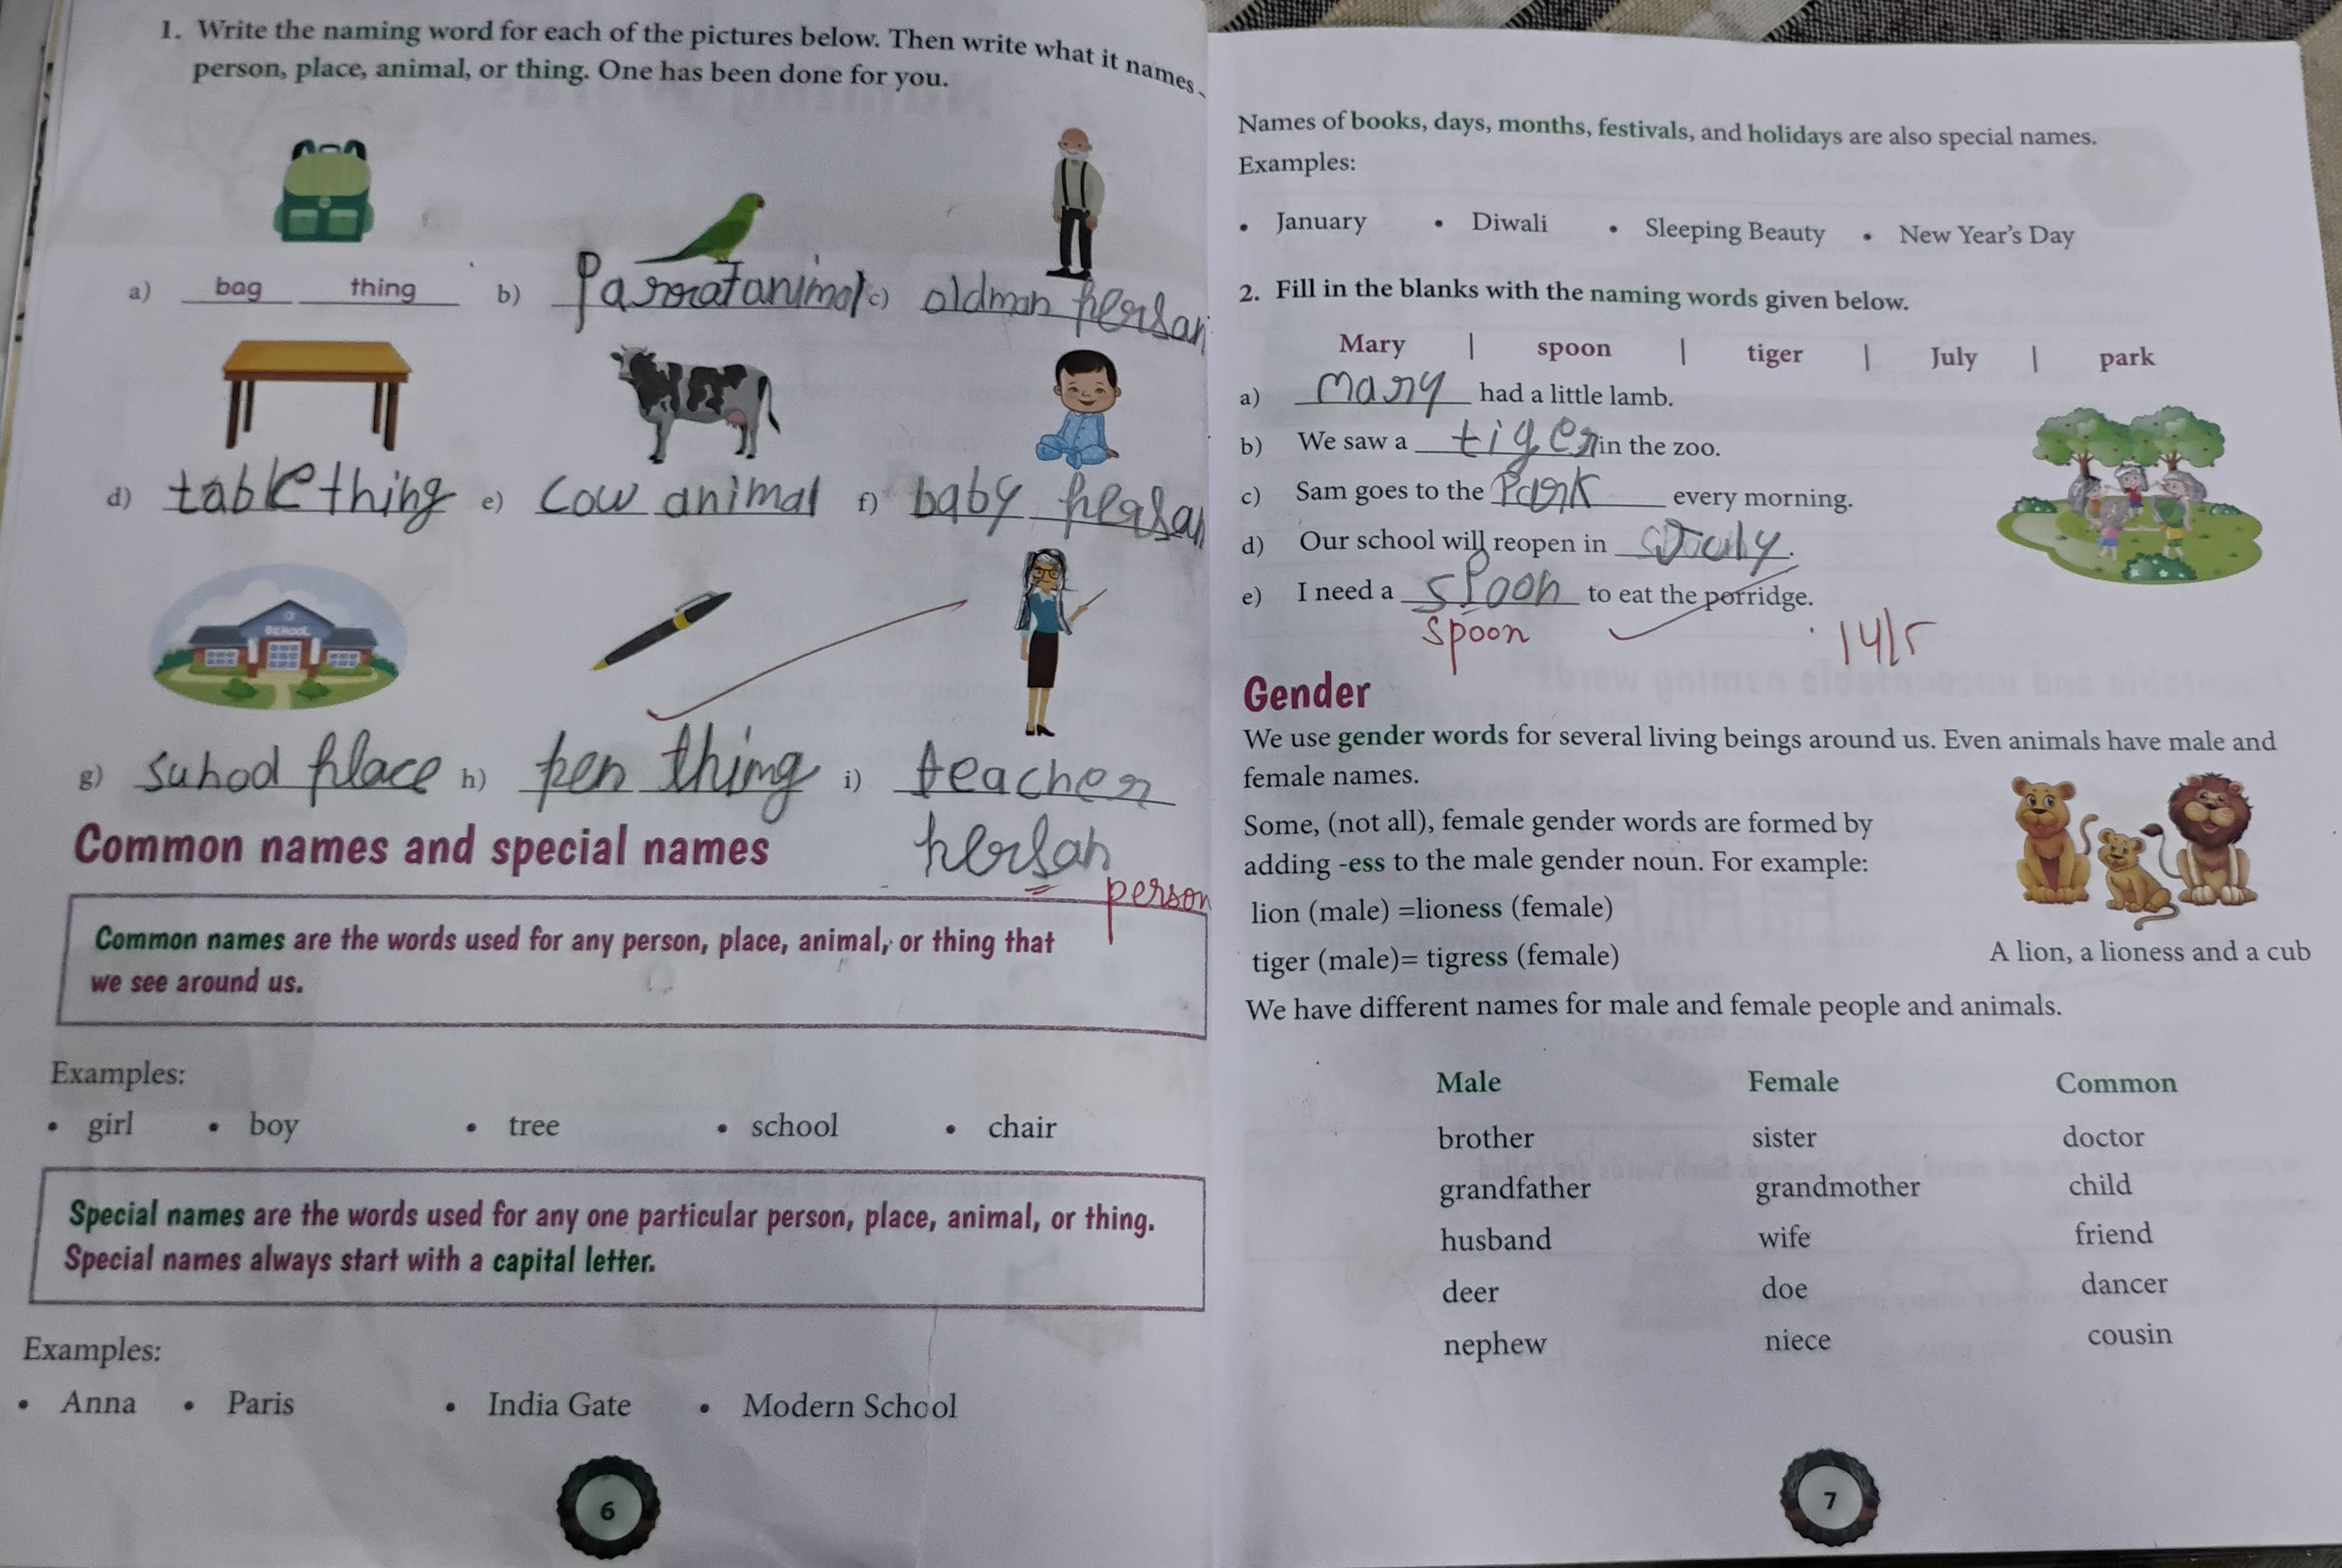 1. Write the naming word for each of the pictures below. Then write what it names
person, place, animal, or thing. One has been done for you.
a) bag thing b) Parrotanimal c) oldman person
d) table thing e) cow animal f) baby person
SCHOOL
g) suhool place h) pen thing i) teacher
person
person
Common names and special names
Common names are the words used for any person, place, animal, or thing that
we see around us.
Examples:
• girl • boy • tree • school • chair
Special names are the words used for any one particular person, place, animal, or thing.
Special names always start with a capital letter.
Examples:
• Anna • Paris • India Gate • Modern School
6
Names of books, days, months, festivals, and holidays are also special names.
Examples:
• January • Diwali • Sleeping Beauty • New Year's Day
2. Fill in the blanks with the naming words given below.
Mary | spoon | tiger | July | park
a) mary had a little lamb.
b) We saw a tiger in the zoo.
c) Sam goes to the Park every morning.
d) Our school will reopen in July.
e) I need a spoon to eat the porridge.
spoon
14/5
Gender
We use gender words for several living beings around us. Even animals have male and
female names.
Some, (not all), female gender words are formed by
adding -ess to the male gender noun. For example:
lion (male) =lioness (female)
tiger (male)= tigress (female)
A lion, a lioness and a cub
We have different names for male and female people and animals.
Male Female Common
brother sister doctor
grandfather grandmother child
husband wife friend
deer doe dancer
nephew niece cousin
7